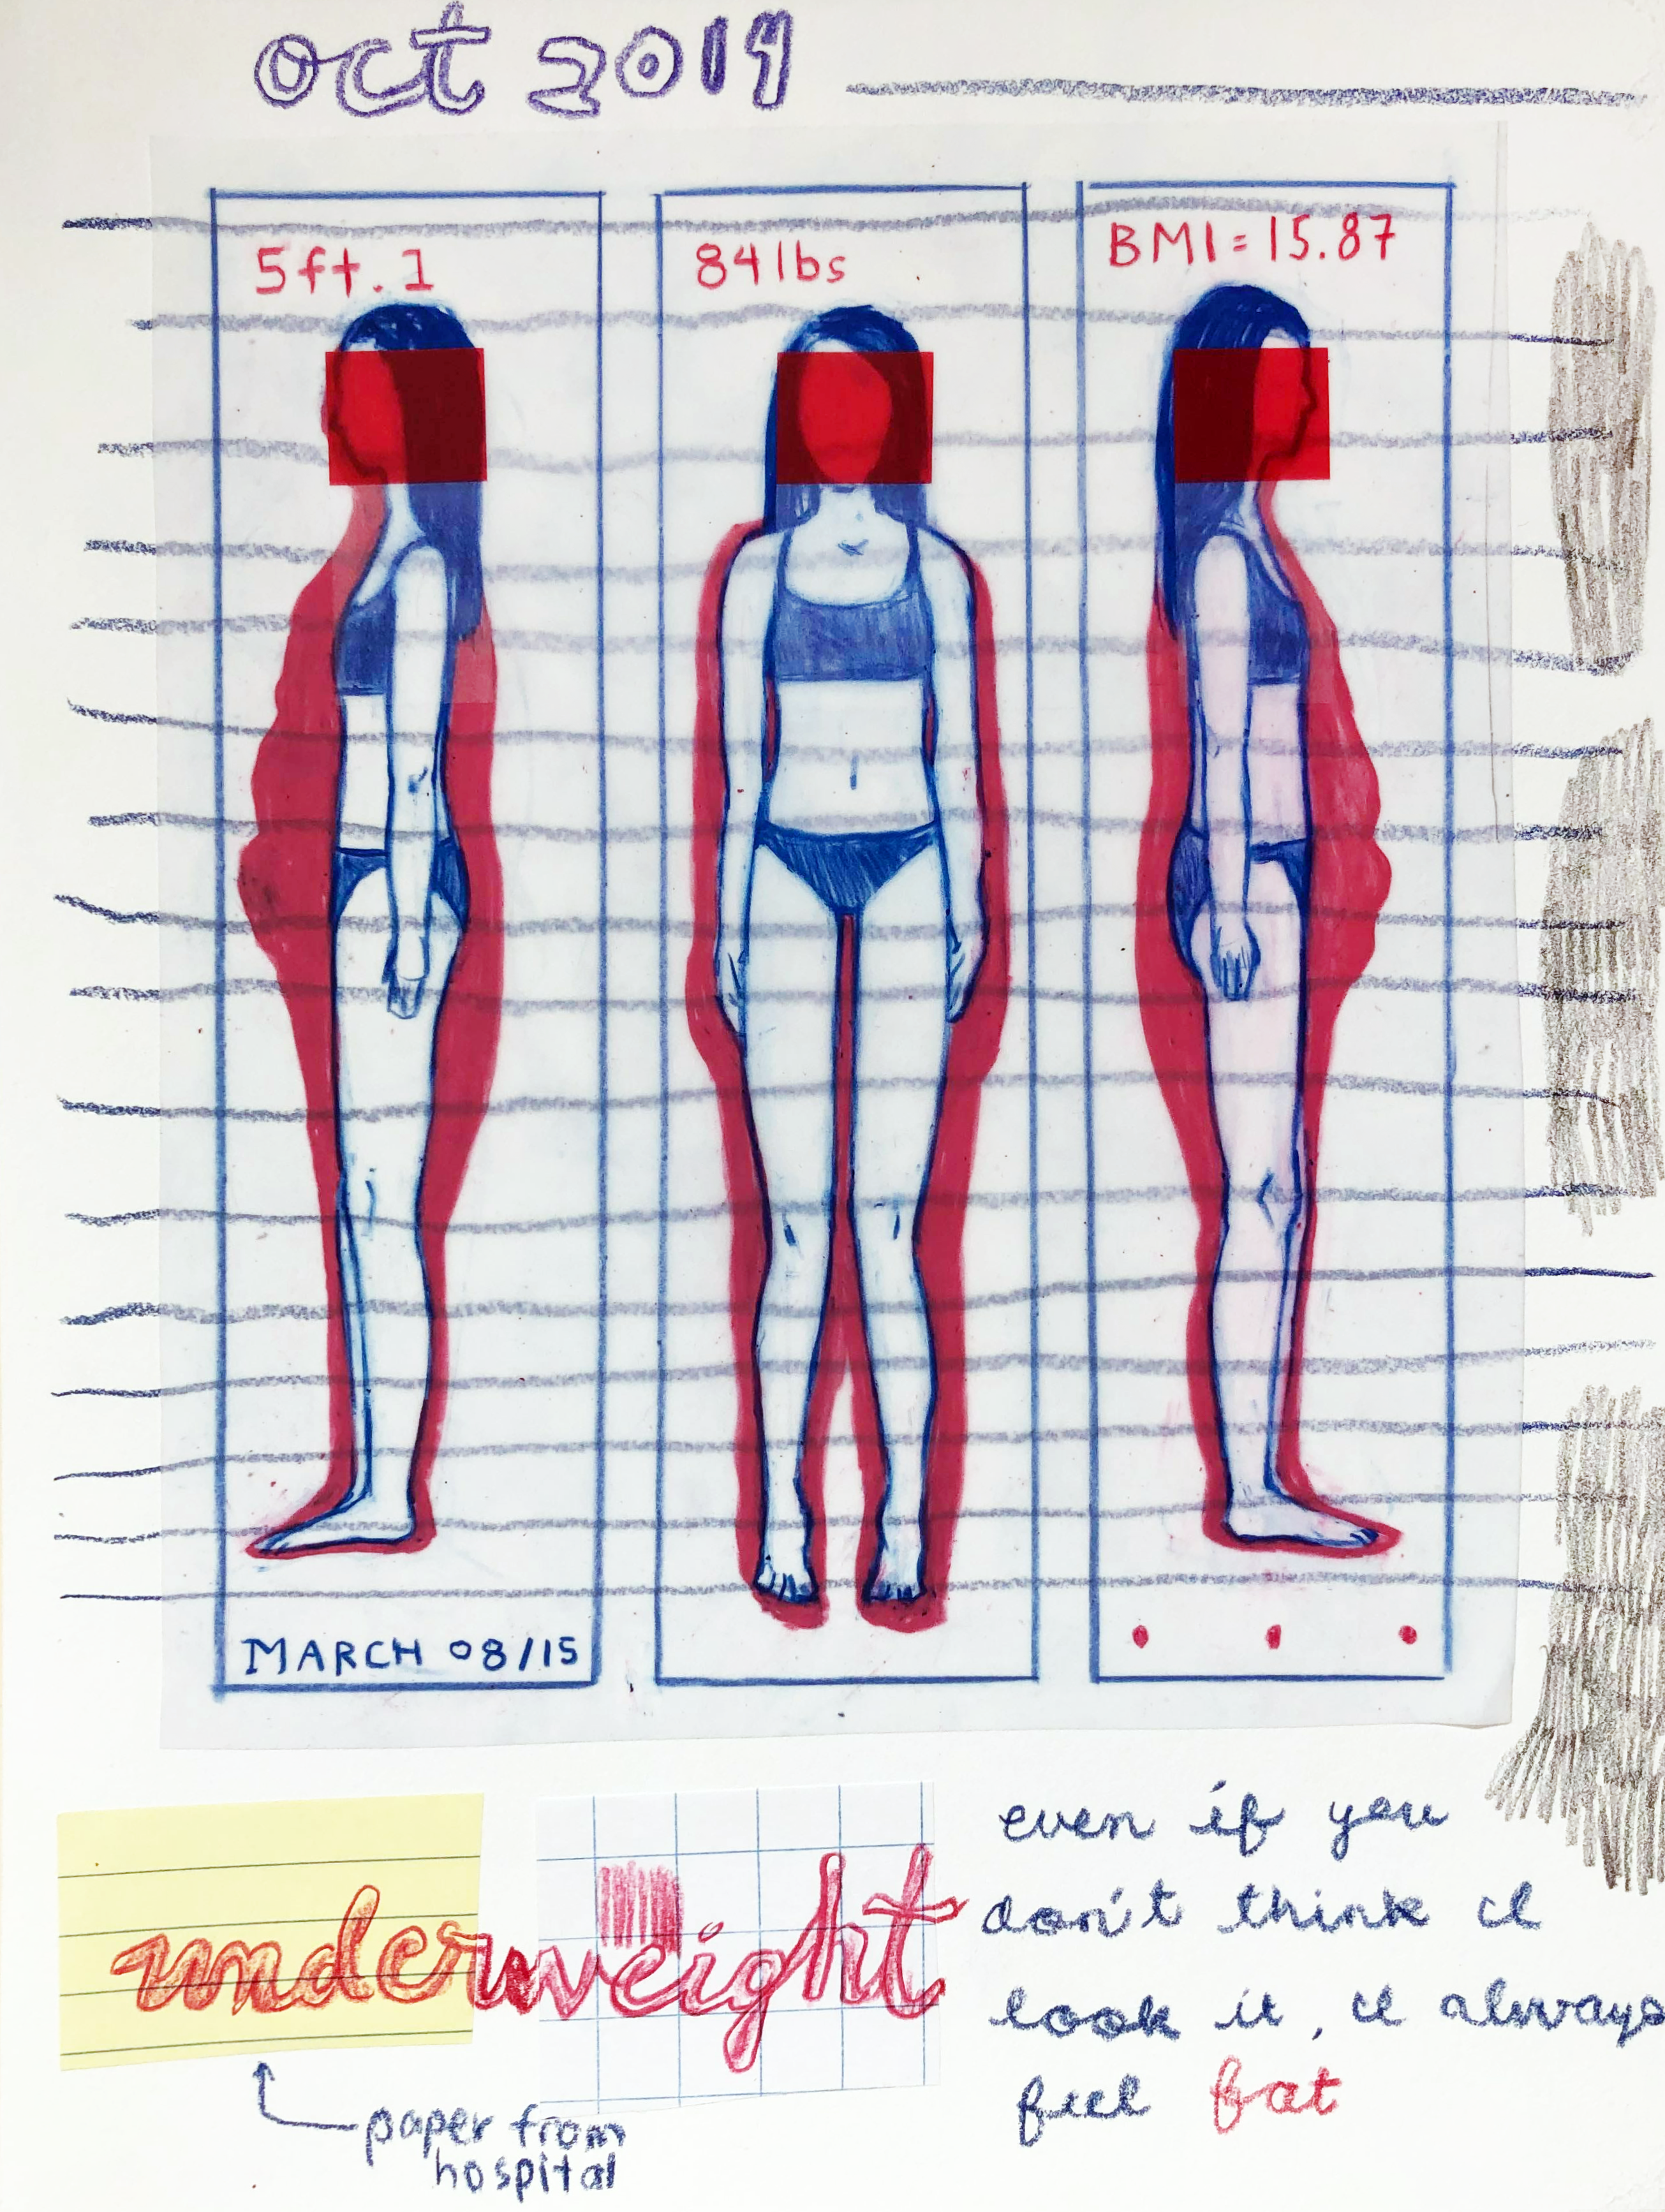 oct 2019
5ft.1
84lbs
BMI = 15.87
MARCH 08/15
underweight
paper from
hospital
even if you
don't think I
look it, I always
feel fat